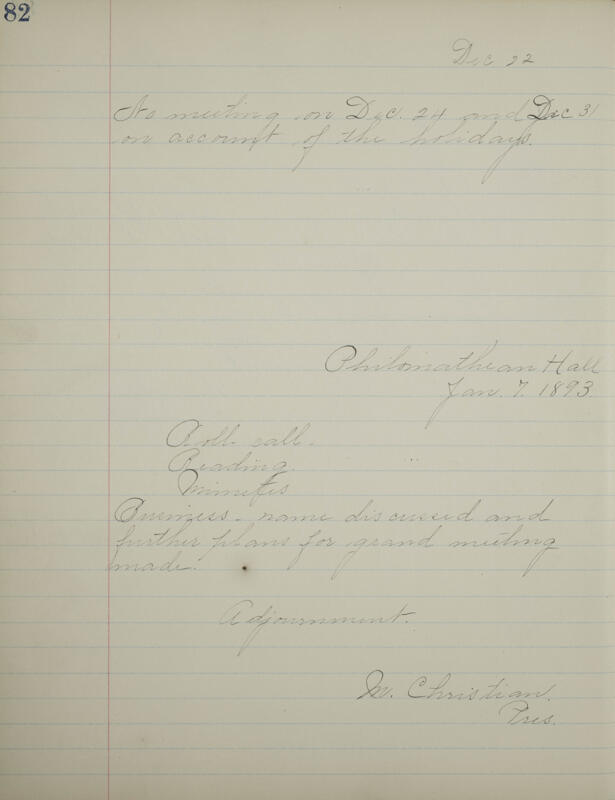 82
Dec 22
No meeting on Dec. 24 and Dec 31
on account of the holidays.
Philomathean Hall
Jan. 7. 1893.
Roll call.
Reading.
Minutes
Business - name discussed and
further plans for grand meeting
made.
Adjournment.
M. Christian.
Pres.